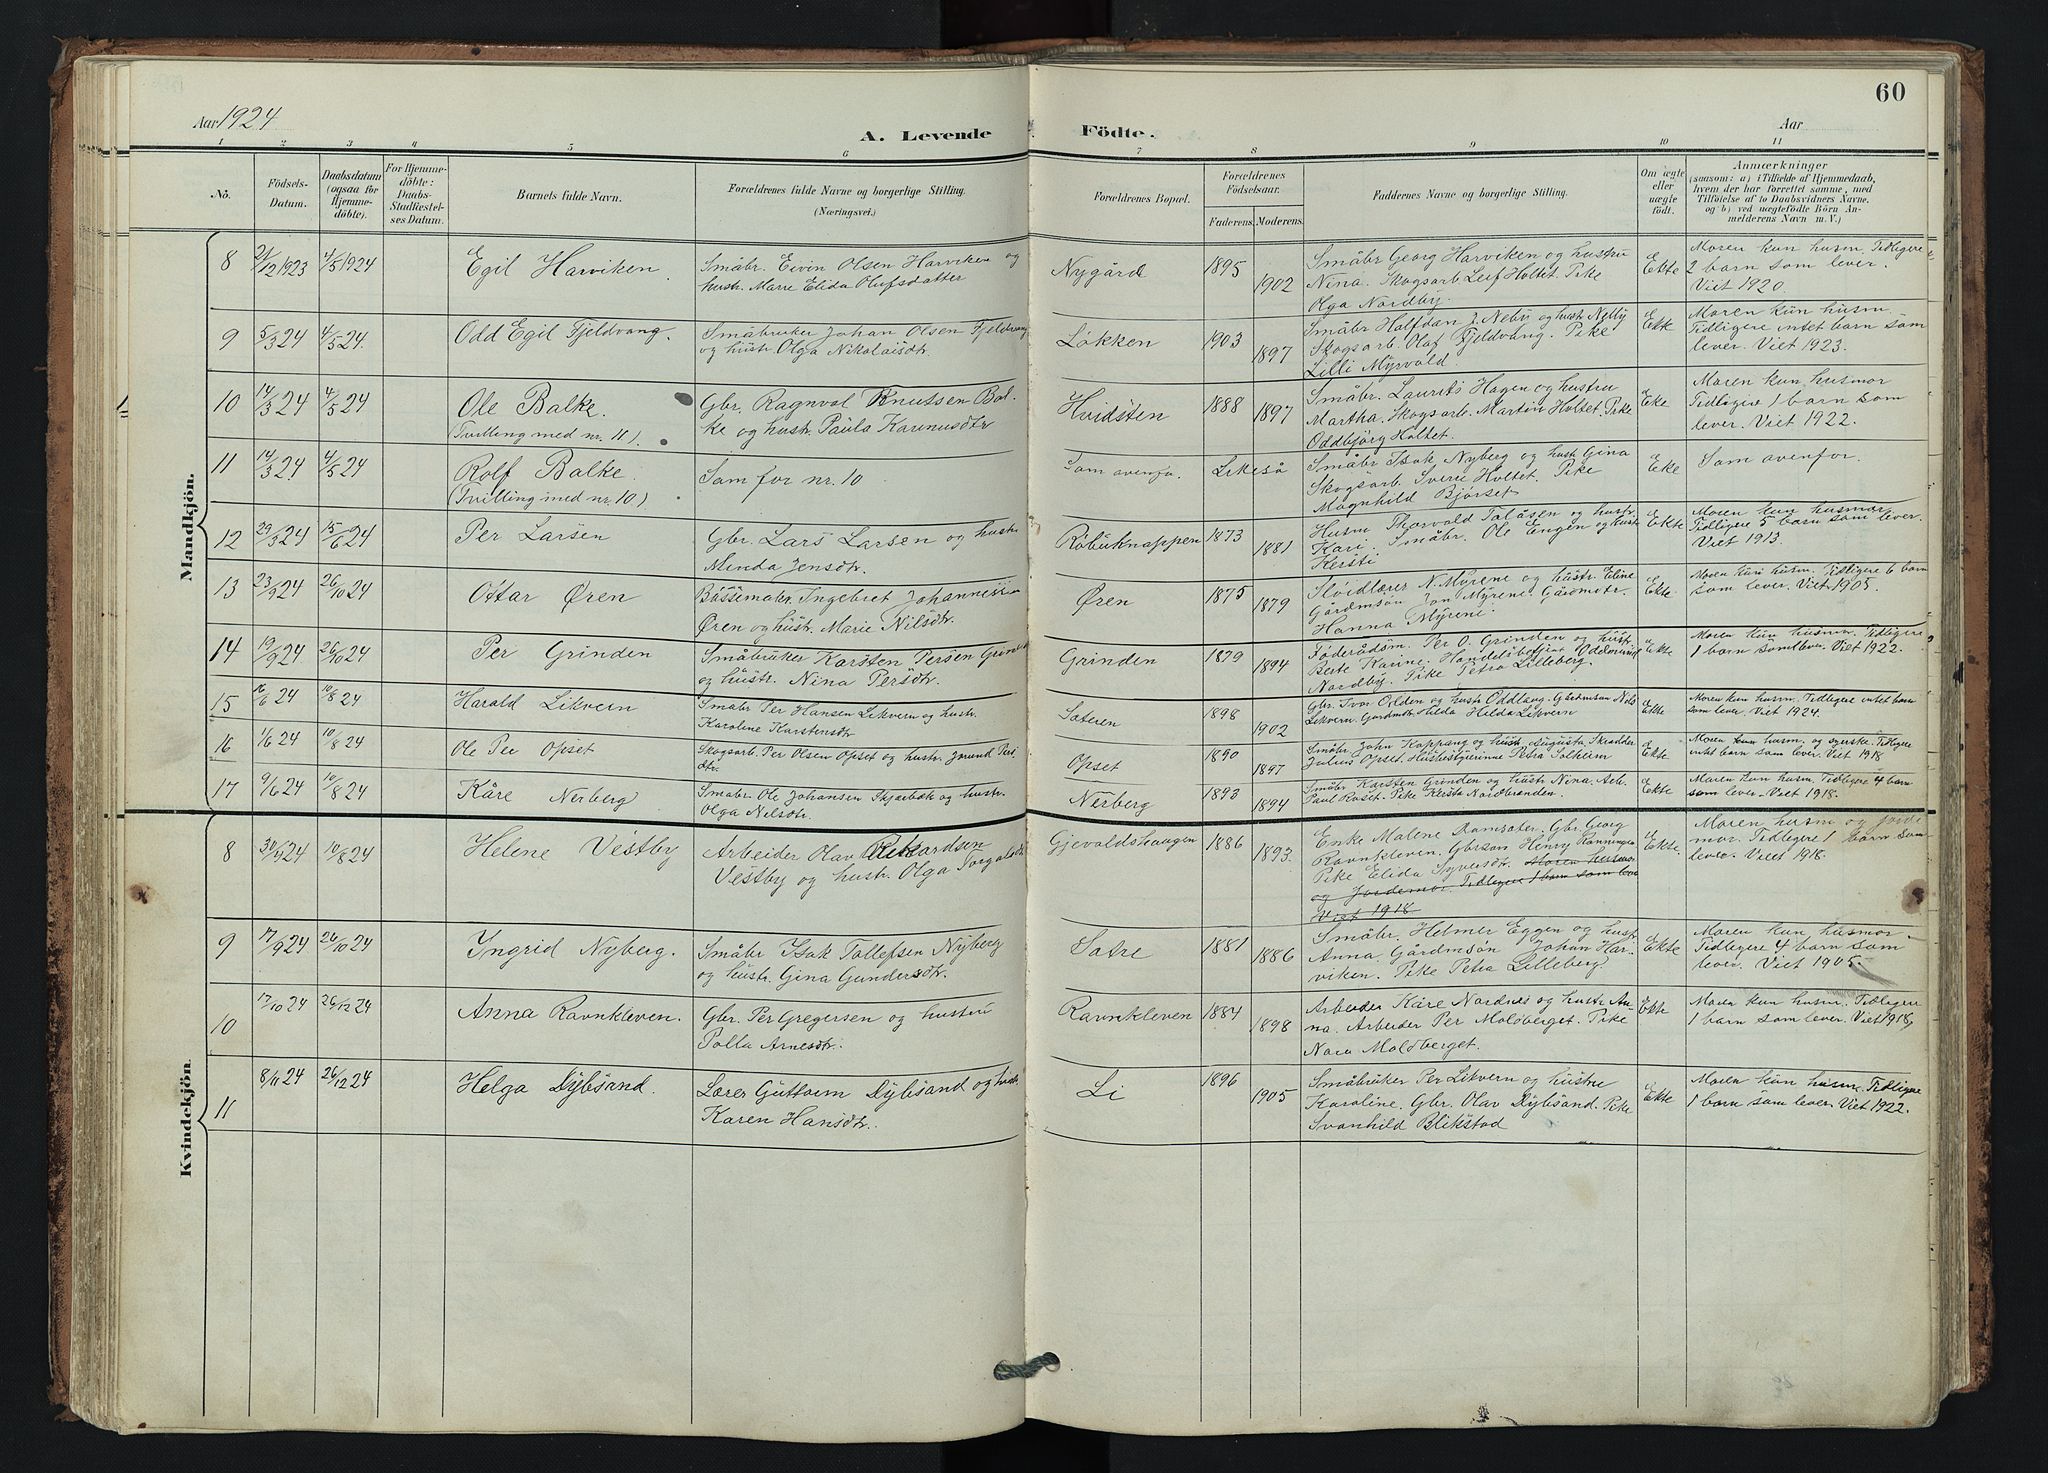 Aar 1924
A. Levende Födte.
Aar
60
1 2 3 4 5 6 7 8 9 10 11
No.
Födsels-
Datum.
Daabsdatum
(ogsaa for
Hjemme-
döbte).
For Hjemme-
döbte:
Daabs-
Stadfæstel-
ses Datum.
Barnets fulde Navn.
Forældrenes fulde Navne og borgerlige Stilling.
(Næringsvei.)
Forældrenes Bopæl.
Forældrenes
Födselsaar.
Faderens. Moderens.
Faddernes Navne og borgerlige Stilling.
Om ægte
eller
uægte
födt.
Anmærkninger
(saasom: a) i Tilfælde af Hjemmedaab,
hvem der har forrettet samme, med
Tilföielse af to Daabsvidners Navne.
og b) ved uægtefödte Börn An-
melderens Navn m. V.)
Mandkjön.
8 21/12 1923 4/5 1924 Egil Harviken.
Småbr. Eivin Olsen Harviken og
hustr. Marie Elida Olufsdatter
Nygård 1895 1902
Småbr Georg Harviken og hustru
Nina. Skogsarb. Leif Holtet. Pike
Olga Nordby.
Ekte
Moren kun husm. Tidligere
2 barn som lever.
Viet 1920.
9 5/3 24 4/5 24. Odd Egil Fjeldvang.
Småbruker Johan Olsen Fjeldvang
og hustr. Olga Nikolaisdtr.
Løkken 1903 1897
Småbr Halfdan J. Nebu og hust Nelly
Skogsarb. Olaf Fjeldvang. Pike
Lilli Myrvold
Ekte
Moren kun husm.
Tidligere intet barn som
lever. Viet 1923.
10 14/3 24 4/5 24 Ole Balke.
(Tvilling med nr. 11).
Gbr. Ragnval Knutsen Bal-
ke og hustr. Paula Karinusdtr
Hvidsten 1888 1897
Småbr. Laurits Hagen og hustru
Martha. Skogsarb. Martin Holtet. Pike
Oddbjörg Holtet.
Eke
Moren kun husmor
Tidligere 1 barn som
lever. Viet 1922.
11 14/3 24 4/5 24 Rolf Balke.
(Tvilling med nr. 10)
Som for nr. 10
Som ovenfo. Likeså
Småbr Isak Nyberg og hust Gina
Skogsarb. Sverre Holtet. Pike
Magnhild Bjørset
Eke
Som ovenfor.
12 29/3 24 15/6 24 Per Larsen
Gbr. Lars Larsen og hustr
Minda Jensdtr.
Røbuknappen 1873 1881
Husm Thorvald Talåsen og hustr.
Kari. Småbr. Ole Engen og hustr
Kersti
Ekte
Moren kun husmor
Tidligere 5 barn som lever.
Viet 1913.
13 23/9 24 26/10 24 Ottar Øren
Bøssemaker Ingebret Johannessen
Øren og hustr. Marie Nilsdtr.
Øren 1875 1879
Sløidlærer N. Myrene og hustr. Eline
Gårdmsön Jon Myrene. Gårdmdtr.
Hanna Myrene
Ekte
Moren kun husm. Tidligere 6 barn
som lever. Viet 1905.
14 19/9 24 26/10 24 Per Grinden
Småbruker Karsten Persen Grinden
og hustr. Nina Persdtr.
Grinden 1879 1894
Föderådsm. Per O. Grinden og hustr
Berte Karine. Handelsbetjent Oddmund
Nordby. Pike Petra Lilleberg.
Ekte
Moren kun husm. Tidligere
1 barn som lever. Viet 1922.
15 16/6 24 10/8 24 Harald Likvern
Småbr Per Hansen Likvern og hustr.
Karoline Karstensdtr
Sæteren 1898 1902
Gbr. Ivar Odden og hustr Oddlaug. Gårdmsøn Nils
Likvern. Gårdmdtr. Hilda Likvern
Ekte
Moren kun husm. Tidligere intet barn
som lever. Viet 1924.
16 1/6 24 10/8 24 Ole Per Opset
Skogsarb. Per Olsen Opset og hustr. Jørund Per-
dtr.
Opset 1890 1897
Småbr. John Koppang og hustr. Augusta. Skrædder
Julius Opset. Husbestyrerinne Petra Solheim
Ekte
Moren kun husm. og syerske. Tidligere
intet barn som lever. Viet 1918
17 9/6 24 10/8 24 Kåre Nerberg
Småbr. Ole Johansen Skjærbæk og hustr.
Olga Nilsdtr.
Nerberg 1893 1894
Småbr Karsten Grinden og hustr Nina. Arb.
Paul Roset. Pike Kersta Nordbranden.
Ekte
Moren kun husm. Tidligere 4 barn
som lever. Viet 1918.
Kvindekjön
8 30/4 24 10/8 24 Helene Vestby
Arbeider Olav Rikardsen
Vestby og hustr. Olga Torgalsdtr
Gjevaldshaugen 1886 1893.
Enke Malene Ramsæter. Gbr. Georg
Ravnkleven. Gbrsøn Henry Rønningen
Pike Elida Syversdtr. Moren husmor
og Jordemor. Tidligere 1 barn som lever
Viet 1918
Ekte.
Moren husm og jorde
mor. Tidligere 1 barn som
lever. Viet 1918.
9 17/9 24 26/10 24 Ingrid Nyberg.
Småbr Isak Tollefsen Nyberg
og hustr. Gina Gundersdtr.
Sætre 1881 1886
Småbr. Helmer Eggen og hustr
Anna. Gårdmsön Johan Har-
viken. Pike Petra Lilleberg
Ekte
Moren kun husmor.
Tidligere 4 barn som
lever. Viet 1905.
10 17/10 24 26/12 24 Anna Ravnkleven.
Gbr. Per Gregersen og hustru
Polla Arnesdtr.
Ravnkleven 1884 1898
Arbeider Kåre Nordnes og hustr An-
na. Arbeider Per Moldberget. Pike
Nora Moldberget.
Ekte
Moren kun husm. Tidligere
1 barn som lever. Viet 1918,
11 8/11 24 26/12 24 Helga Dybsand.
Lærer Guttorm Dybsand og hustr.
Karen Hansdtr.
Li 1896 1905
Småbruker Per Likvern og hustru
Karoline. Gbr. Olav Dybsand. Pike
Svanhild Blikstad
Ekte
Moren kun husm. Tidligere
1 barn som lever. Viet 1922.